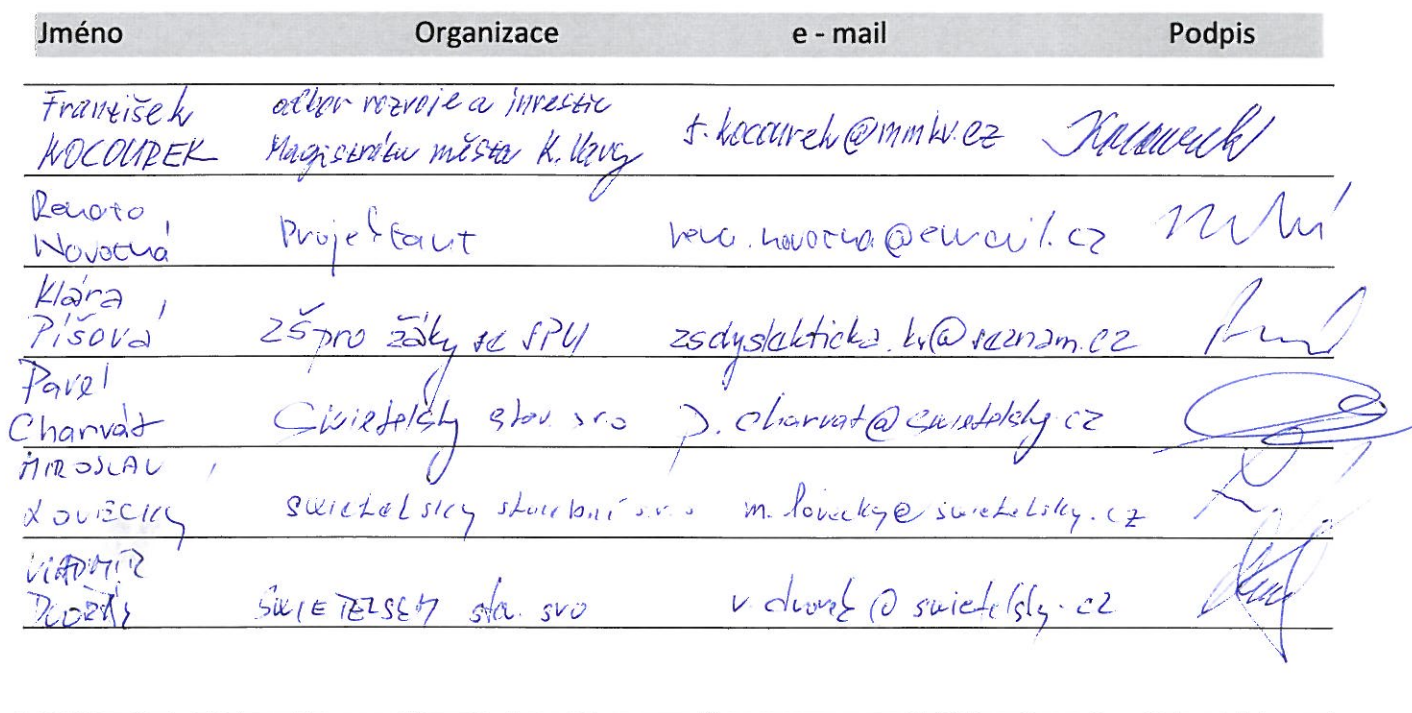 Jméno Organizace e - mail Podpis
František odbor rozvoje a investic
KOCOUREK Magistrátu města K. Vary f.kocourek@mmkv.cz
Renata
Novotná Projektant rena.novotna@email.cz
Klára
Píšová ZŠ pro žáky se SPU zsdyslekticka.kv@seznam.cz
Pavel
Charvát Swietelsky stav. sro p.charvat@swietelsky.cz
MIROSLAV
LOVECKÝ swietelsky stavební s.r.o m.lovecky@swietelsky.cz
VLADIMÍR
DVOŘÁK SWIETELSKY sta. sro v.dvorak@swietelsky.cz